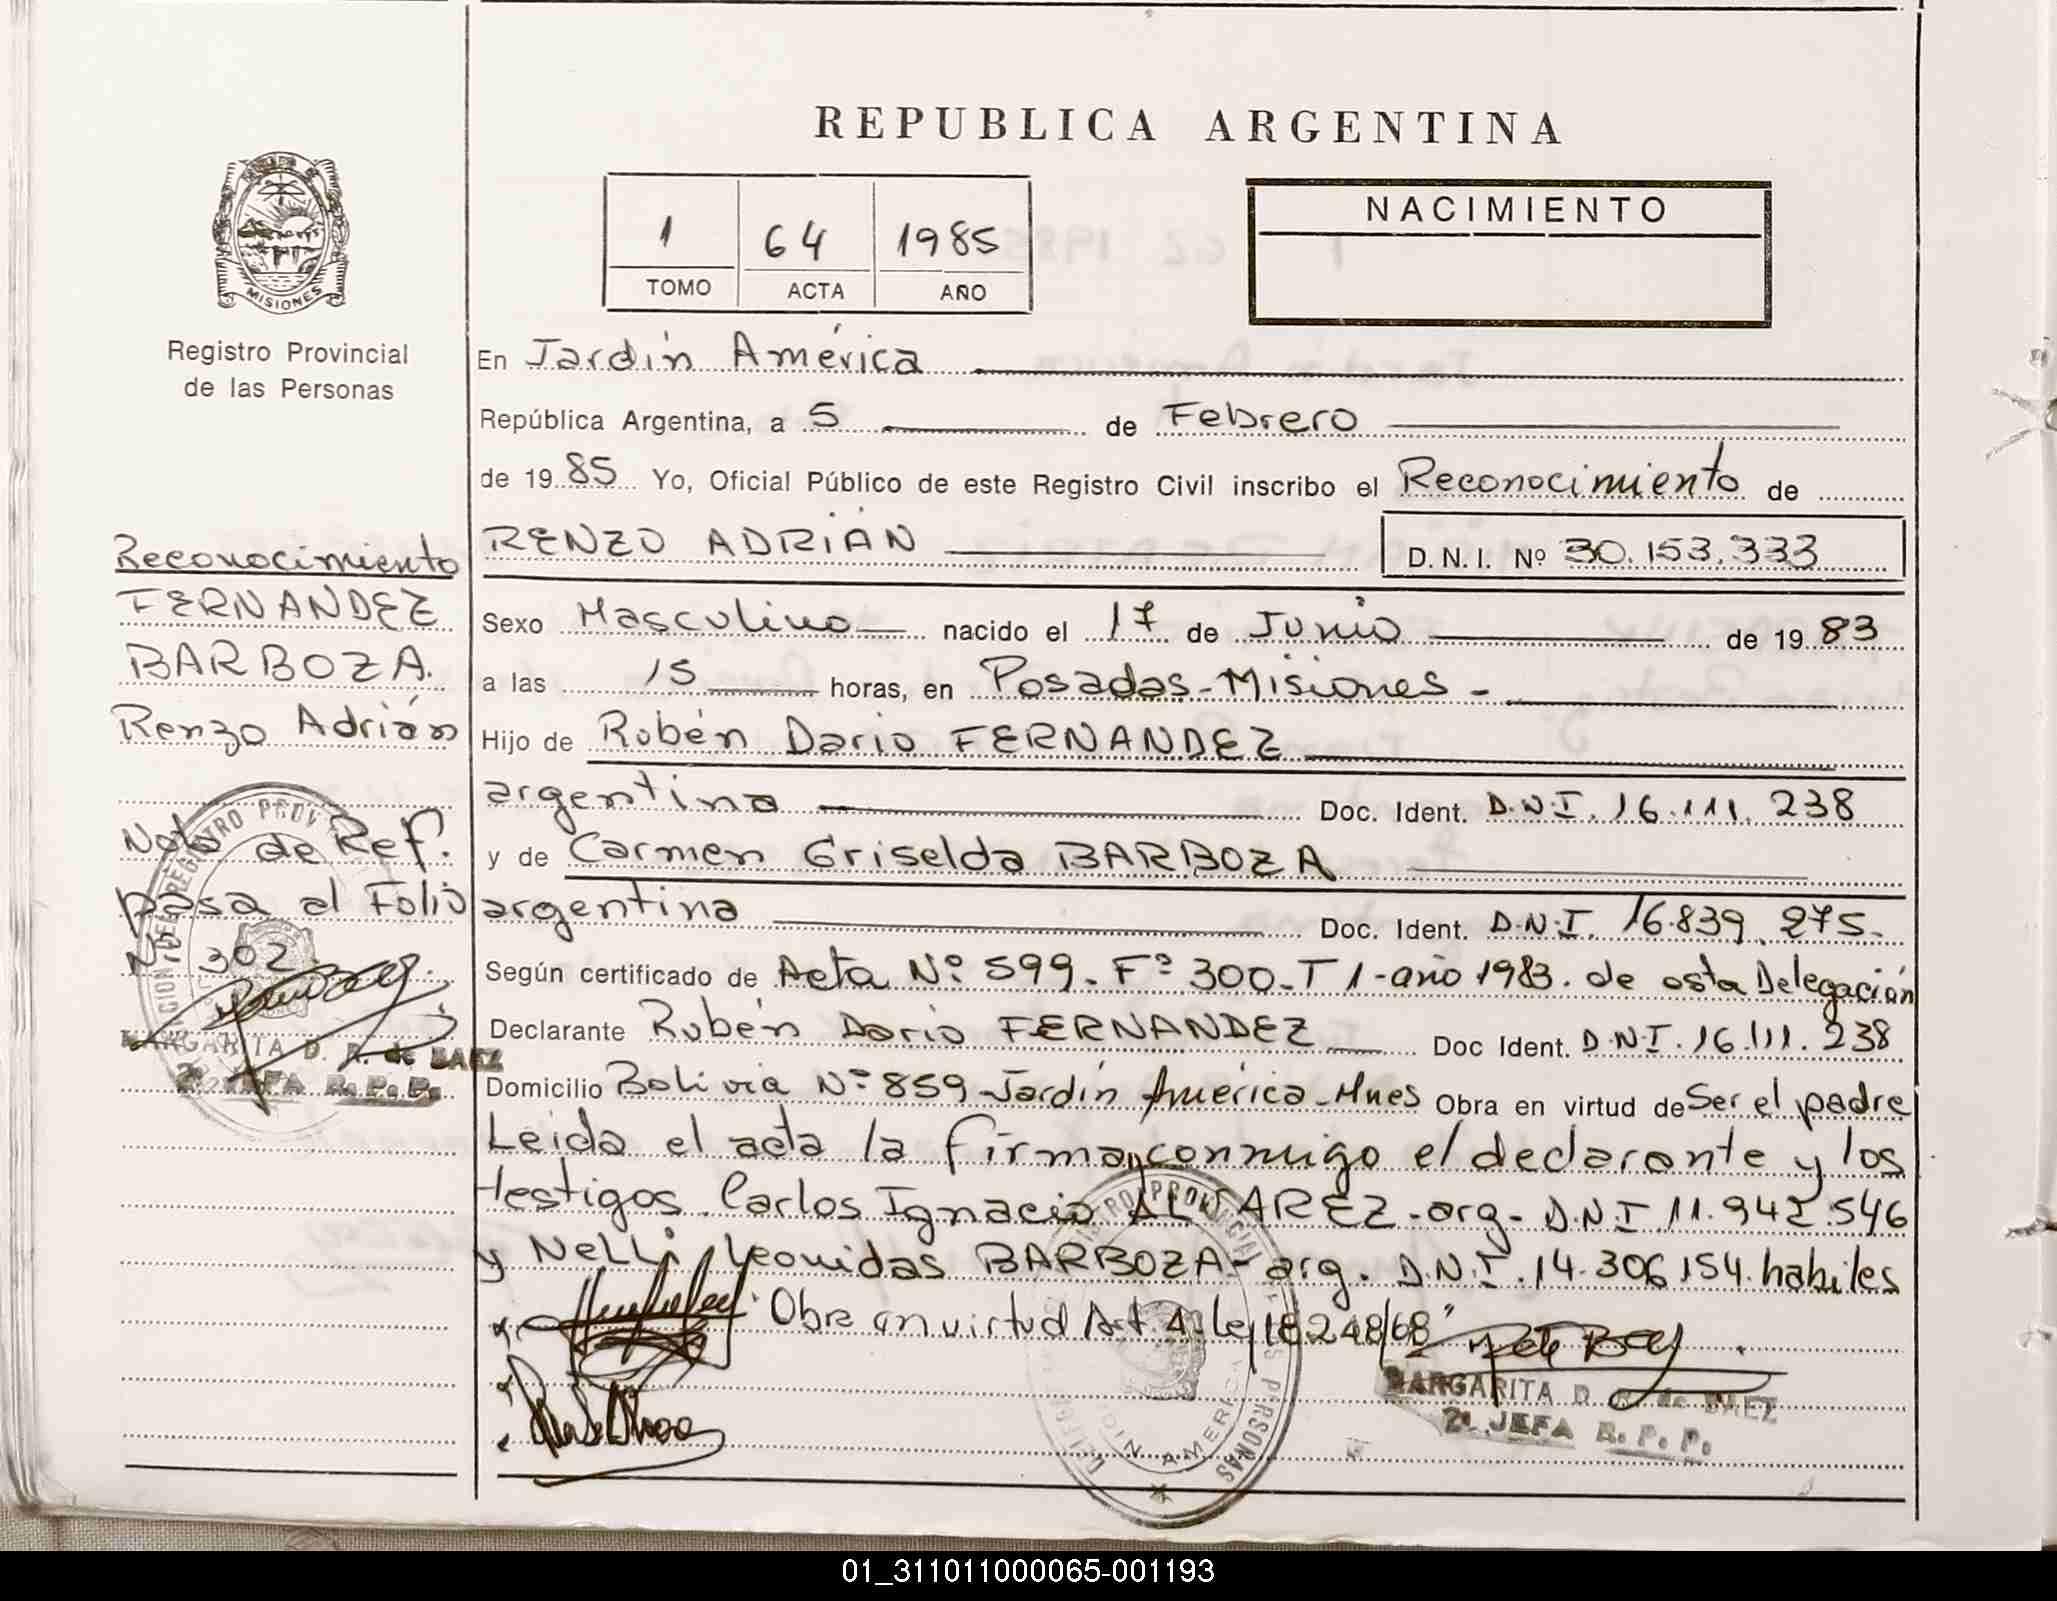 REPUBLICA ARGENTINA
1 64 1985
TOMO ACTA AÑO
NACIMIENTO
MISIONES
Registro Provincial
de las Personas
Reconocimiento
FERNANDEZ
BARBOZA.
Renzo Adrián
Nota de Ref.
pasa al Folio
Nº 302.
MARGARITA D. R. de BAEZ
2ª JEFA R. P. P.
En Jardín América
República Argentina, a 5 de Febrero
de 19 85 Yo, Oficial Público de este Registro Civil inscribo el Reconocimiento de
RENZO ADRIÁN D. N. I. Nº 30.153.333
Sexo Masculino nacido el 17 de Junio de 19 83
a las 15 horas, en Posadas - Misiones -
Hijo de Rubén Dario FERNANDEZ
argentina Doc. Ident. D.N.I. 16.111.238
y de Carmen Griselda BARBOZA
argentina Doc. Ident. D.N.I. 16.839.275.
Según certificado de Acta Nº 599. Fº 300. T 1 - año 1983. de esta Delegación
Declarante Rubén Dario FERNANDEZ Doc Ident. D.N.I. 16.111.238
Domicilio Bolivia Nº 859 - Jardín América - Mnes Obra en virtud de Ser el padre
Leída el acta la firman conmigo el declarante y los
testigos. Carlos Ignacio ALVAREZ - arg - D.N.I 11.942.546
y Nelli Leonidas BARBOZA - arg. D.N.I. 14.306.154. habiles
Obra en virtud Art. 4. Ley 18.248/68"
MARGARITA D. R. de BAEZ
2ª JEFA R. P. P.
01_311011000065-001193